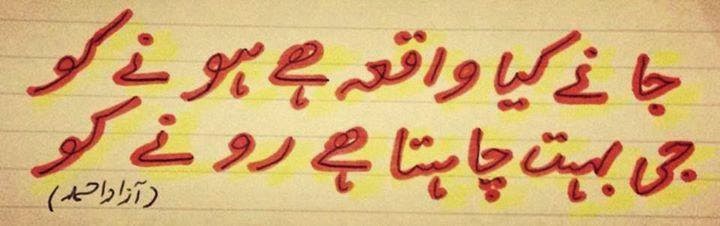 جانے کیا واقعہ ہے ہونے کو
جی بہت چاہتا ہے رونے کو
(آزاد احمد)